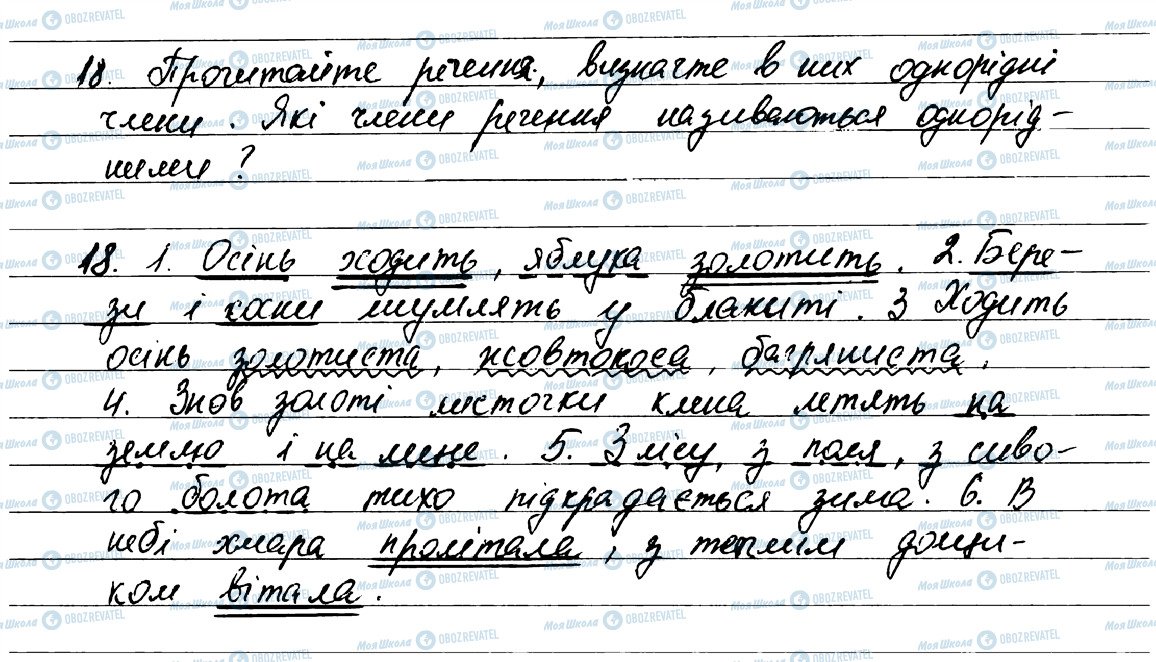 18. Прочитайте речення, визначте в них однорідні
члени. Які члени речення називаються однорід-
ними?
18. 1. Осінь ходить, яблука золотить. 2. Бере-
зи і сани шумлять у блакиті. 3 Ходить
осінь золотиста, жовтокоса, багряниста.
4. Знов золоті листочки клена летять на
землю і на мене. 5. З лісу, з поля, з сиво-
го болота тихо підкрадається зима. 6. В
небі хмара пролітала, з теплим дощи-
ком вітала.